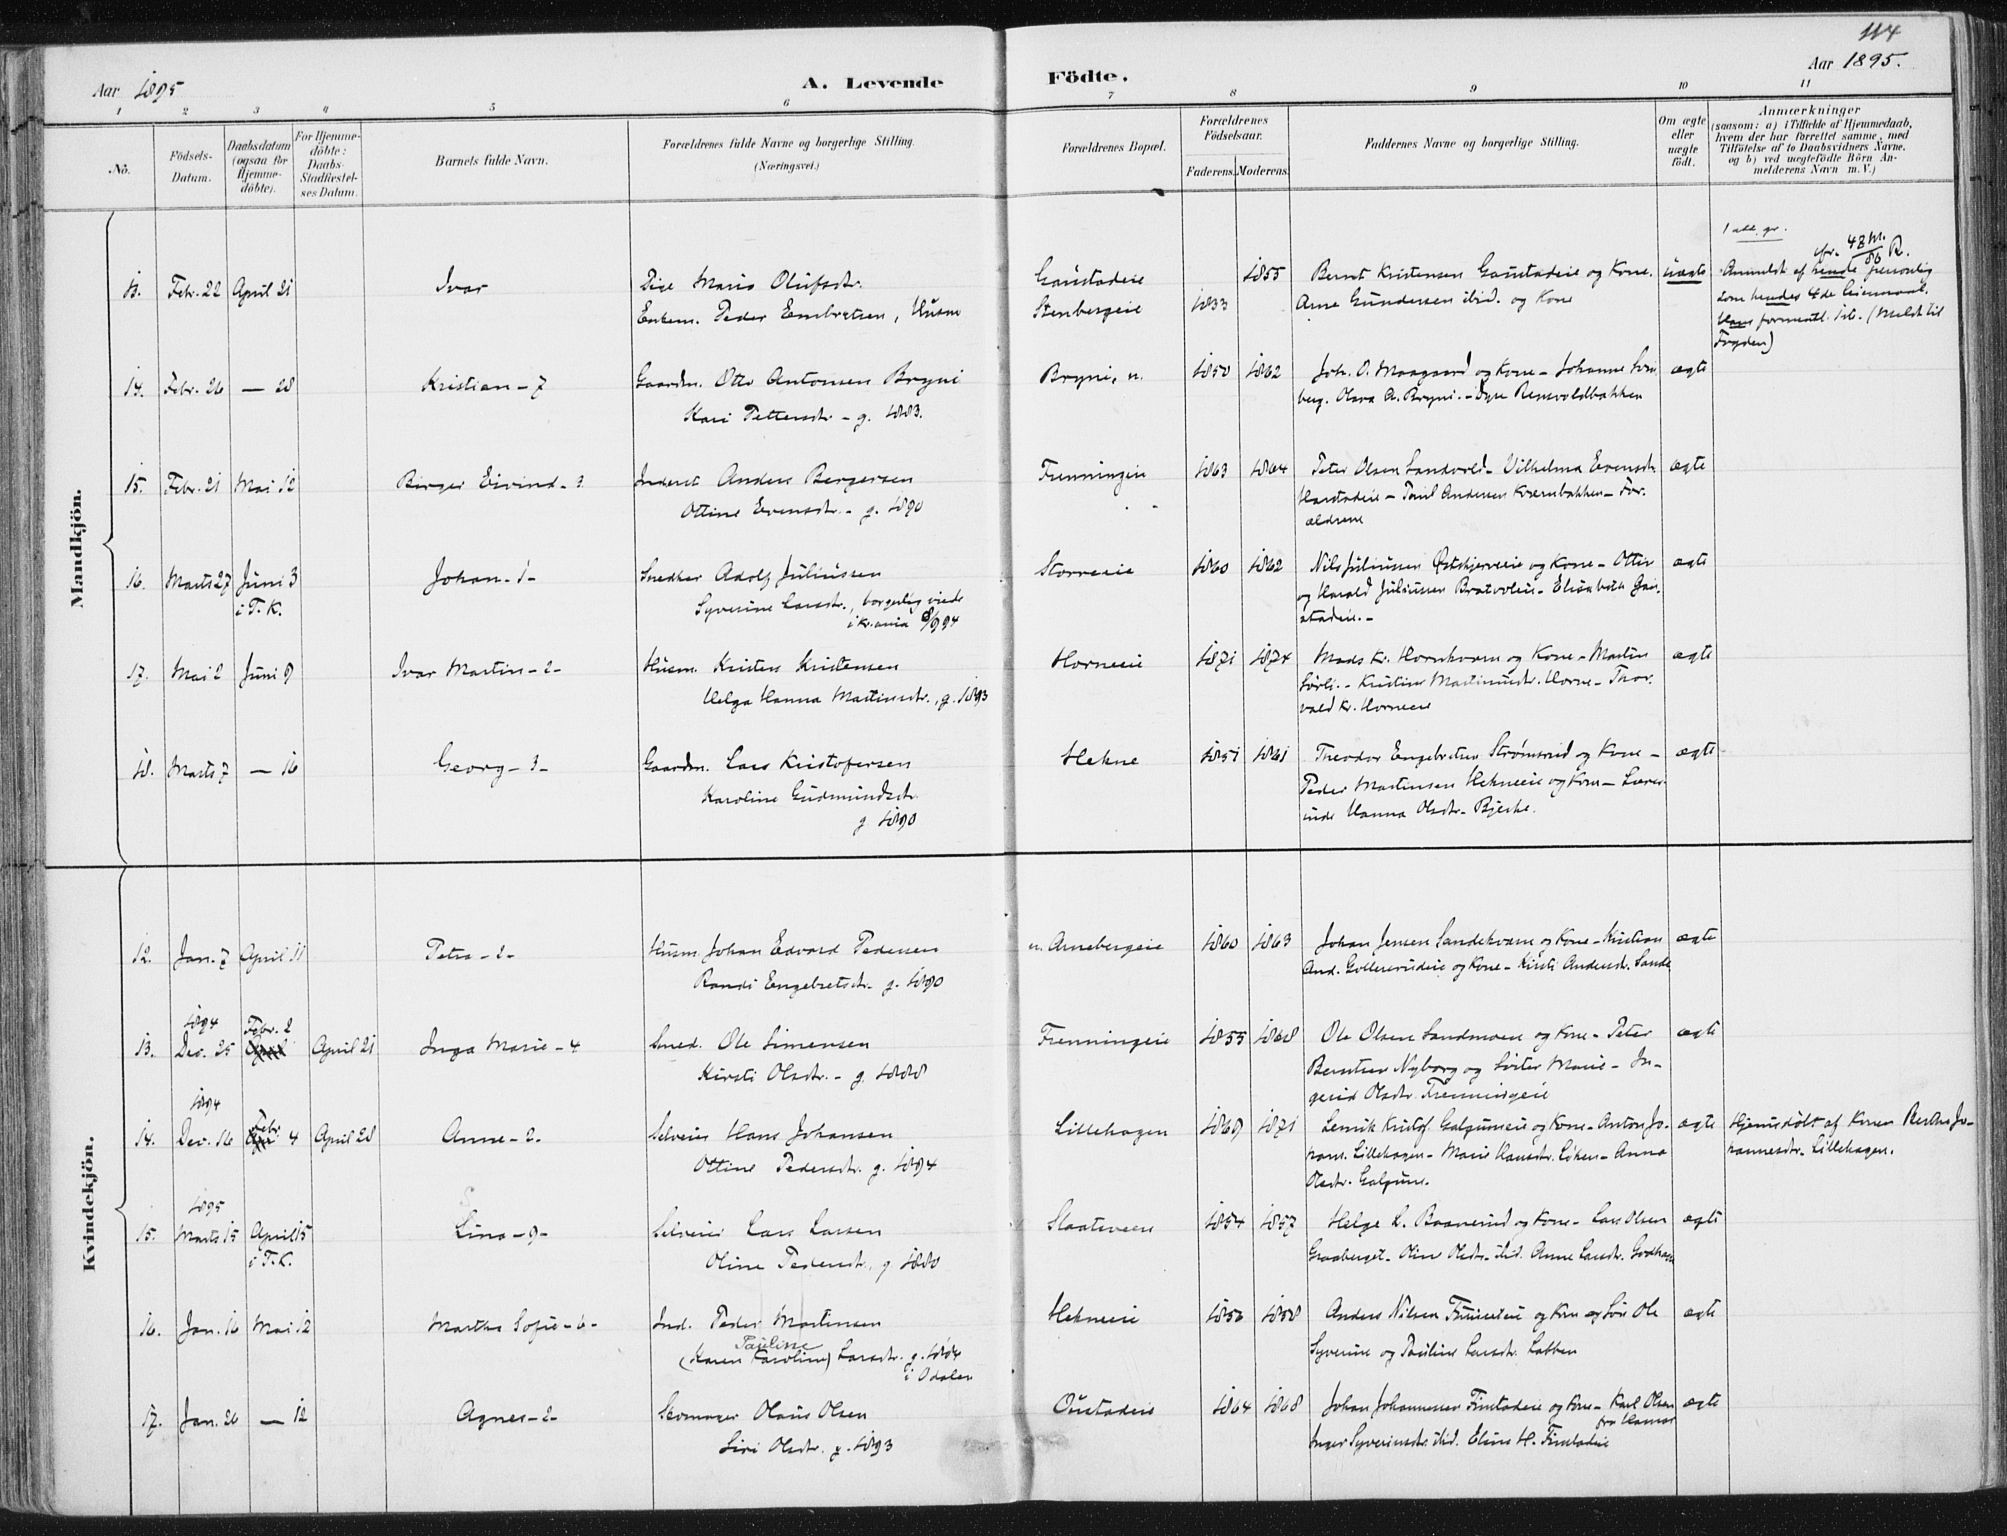 114
Aar 1895
A. Levende Födte.
Aar 1895.
1 2 3 4 5 6 7 8 9 10 11
No.
Födsels-
Datum.
Daabsdatum
(ogsaa for
Hjemme-
döbte).
For Hjemme-
döbte:
Daabs-
Stadfæstel-
ses Datum.
Barnets fulde Navn.
Forældrenes fulde Navne og borgerlige Stilling.
(Næringsvei.)
Forældrenes Bopæl.
Forældrenes
Födselsaar.
Faderens.
Moderens.
Faddernes Navne og borgerlige Stilling.
Om ægte
eller
uægte
födt.
Anmærkninger
(saasom: a) i Tilfælde af Hjemmedaab,
hvem der har forrettet samme, med
Tilföielse af to Daabsvidners Navne.
og b) ved uægtefödte Börn An-
melderens Navn m. V.)
Mandkjön.
13. Febr. 22 April 21 Ivar Pige Marie Olufsdtr. Gaustadeie 1855 Bernt Kristensen Gaustadeie og Kone. uægte
Enkem. Peder Embretsen, Husm Stenbergeie 1833 Arne Gundersen ibid. og Kone
Anmeldt af hende personlig
som hendes 4de Leiermaal.
Hans formentl. 1ste. (Meldt til
Fogden)
14. Febr. 26 — 28 Kristian - 7 Gaardm. Otto Antonsen Bryni Bryni, n. 1850 1862 Joh. O. Maagaard og Kone - Johanne ægte
Kari Pettersdtr - g. 1883. berg. Olava A. Bryni. -
15. Febr. 21 Mai 12 Birger Eivind - 3 Inderst Anders Bergersen Frenningeie 1863 1864 Peter Olsen Sandvold - Vilhelma Evensdtr. ægte
Ottine Evensdtr. - g. 1890 Harstadeie - Paul Andersen Kværnbakken - For-
ældrene
16. Marts 27 Juni 3 Johan - 1 - Snedker Adolf Juliussen Storveie 1860 1862 Nils Juliussen og Kone - ægte
i T.K. Syverine Larsdtr., borgerlig viede og Harald Juliussen - Elisabeth Gau-
i Kr.ania 8/9 94 stadeie. -
17. Mai 2 Juni 9 Ivar Martin - 2 - Husm. Kristen Kristensen Horneeie 1871 1874 Mads Kr. Hornkværn og Kone - Martin ægte
Helga Hanna Martinsdtr., g. 1893 Sörli. - Kristine Martinusdtr. Horne - Thor-
vald Kr. Horneeie
18. Marts 7 — 16 Georg - 3 - Gaardm. Lars Kristofersen Hekne 1851 1861 Theodor Engebretsen Strømsrud og Kone - ægte
Karoline Gudmundsdtr. Peder Martinsen Hekneeie og Kone - Lærer-
g 1890 inde Hanna Olsdtr. Bjerke.
Kvindekjön.
12. Jan. 7 April 11 Petra - 2 - Husm. Johan Edvard Pedersen n. Arnebergeie 1860 1863 Johan Jensen Sandekværn og Kone - Kristian ægte
Randi Engebretsdtr. g. 1890 And. Gollererudeie og Kone - Kirsti Andersdtr. Sande
1894 Febr. 2
13. Dec. 25 April 21 Inga Marie - 4 Smed. Ole Simensen Frenningeie 1855 1868 Ole Olsen Sandmoen og Kone - Peter ægte
Kirsti Olsdtr. - g. 1888 Berntsen Nyborg og Söster Marie - In-
gerid Olsdtr. Frenningeie
1894 Febr
14. Dec. 16 4 April 28 Anne - 2 - Selveier Hans Johansen Lillehagen 1869 1871 Kristof. Galguneie og Kone - Anton Jo- ægte Hjemmedöbt af Konen Berthe Jo-
Ottine Pedersdtr. g. 1894 hans. Lillehagen - Marie Hansdtr. Löken - Anna hannesdtr. Lillehagen.
Olsdtr. Galgune.
1895
15. Marts 15 April 15 Lina - 9 - Selveier Lars Larsen Slaatveen 1854 1857 Helge L. Baanerud og Kone - Lars Olsen ægte
i T.K. Oline Pedersdtr. g 1880 Graaberget - Oline Olsdtr. ibid. Anne Larsdtr.
16. Jan. 16 Mai 12 Martha Sofie - 6 - Ind. Peder Martinsen Hekneeie 1858 Anders Nilsen og Kone og Sön Ole ægte
Pauline
(Karen Karoline) Larsdtr. g. 1884 Syverine og Pauline Larsdtr. Labben
i Odalen
17. Jan. 26 — 12 Agnes - 2 - Skomager Olaus Olsen Oustadeie 1864 1868 Johan Johannessen Finstadeie og Kone - Karl Olsen ægte
fra Hamar
Siri Olsdtr. g. 1893 Inger Syverinsdtr. ibid. Elise H. Finstadeie